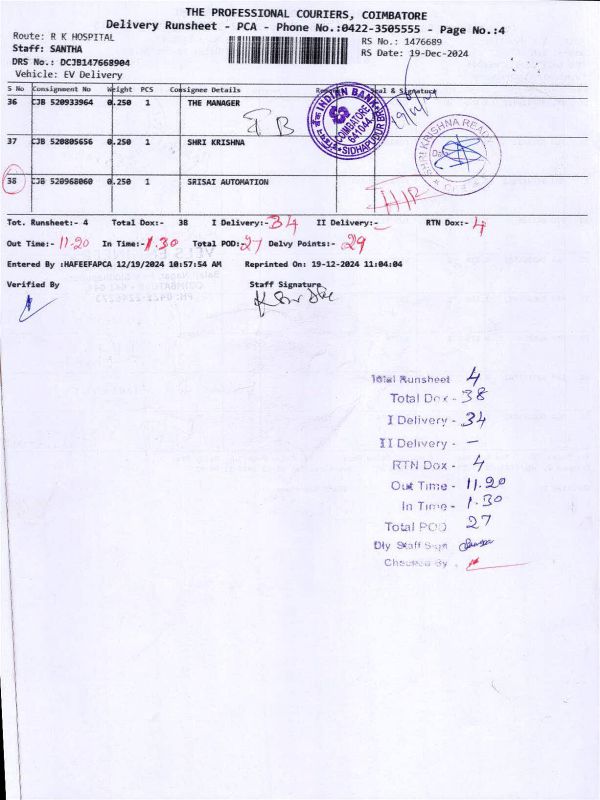 THE PROFESSIONAL COURIERS, COIMBATORE
Delivery Runsheet - PCA - Phone No.:0422-3505555 - Page No.:4
Route: R K HOSPITAL
RS No.: 1476689
Staff: SANTHA
RS Date: 19-Dec-2024
DRS No.: DCJB147668904
Vehicle: EV Delivery
S No Consignment No Weight PCS Consignee Details Seal & Signature
36 CJB 520933964 0.250 1 THE MANAGER
INDIAN BANK
COIMBATORE
641044
SIDHAPUDUR BR
37 CJB 520805656 0.250 1 SHRI KRISHNA
38 CJB 520968060 0.250 1 SRISAI AUTOMATION
Tot. Runsheet:- 4 Total Dox:- 38 I Delivery:- 34 II Delivery:- - RTN Dox:- 4
Out Time:- 11-20 In Time:- 1.30 Total POD:- 27 Delvy Points:- 29
Entered By :HAFEEFAPCA 12/19/2024 10:57:54 AM Reprinted On: 19-12-2024 11:04:04
Verified By Staff Signature
Total Runsheet 4
Total Dox - 38
I Delivery - 34
II Delivery - —
RTN Dox - 4
Out Time - 11.20
In Time - 1.30
Total POD 27
Dly Staff Sign
Checked By .